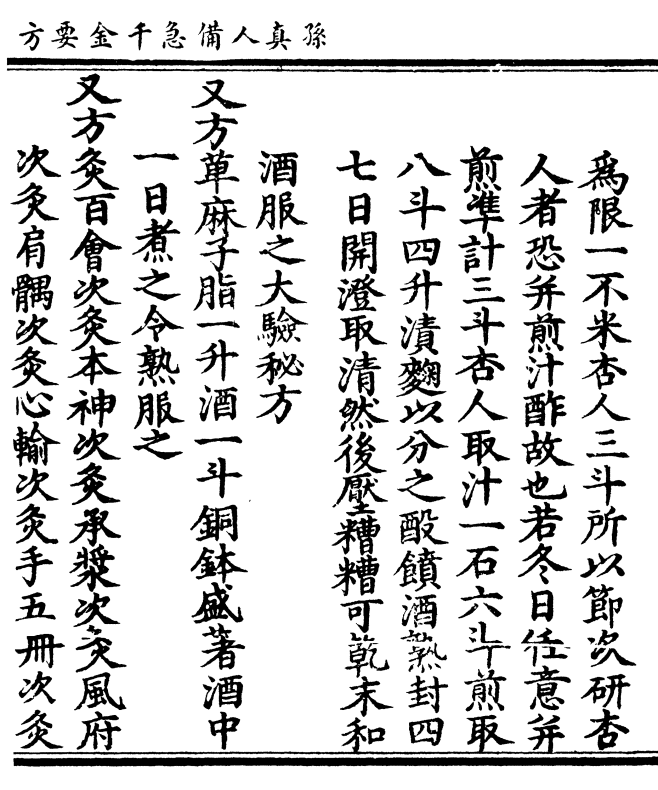 孫真人備急千金要方
為限一不米杏人三斗所以節次研杏
人者恐并煎汁酢故也若冬日任意并
煎準計三斗杏人取汁一石六斗煎取
八斗四升漬麴以分之酘饙酒熟封四
七日開澄取清然後壓糟糟可乾末和
酒服之大驗秘方
又方萆麻子脂一升酒一斗銅鉢盛著酒中
一日煮之令熟服之
又方灸百會次灸本神次灸承漿次灸風府
次灸肩髃次灸心輸次灸手五冊次灸